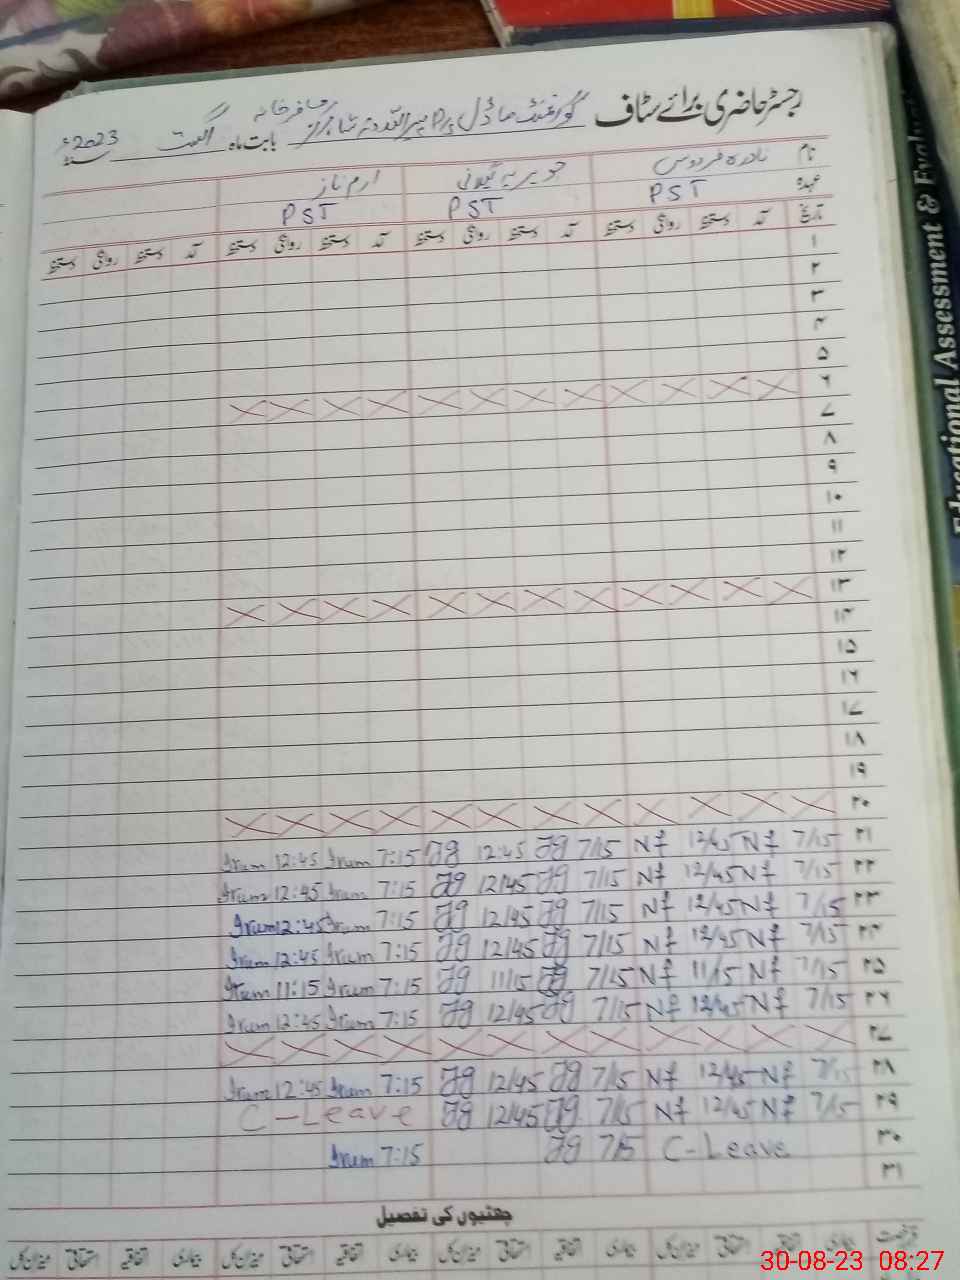 رجسٹر حاضری برائے سٹاف گورنمنٹ ماڈل پر P میر اللہ دتہ شاہ مسافر خانہ بابت ماہ اگست سنہ 2023ء
نام نادرہ فردوس جویریہ گیلانی ارم ناز
عہدہ PST PST PST
تاریخ آمد دستخط روانگی دستخط آمد دستخط روانگی دستخط آمد دستخط روانگی دستخط آمد دستخط روانگی دستخط
۱
۲
۳
۴
۵
۶
۷
۸
۹
۱۰
۱۱
۱۲
۱۳
۱۴
۱۵
۱۶
۱۷
۱۸
۱۹
۲۰
۲۱ 7/15 Nf 12/45 Nf 7/15 Jg 12:45 Jg 7:15 Irum 12:45 Irum
۲۲ 7/15 Nf 12/45 Nf 7/15 Jg 12/45 Jg 7:15 Irum 12:45 Irum
۲۳ 7/15 Nf 12/45 Nf 7/15 Jg 12/45 Jg 7:15 Irum 12:45 Irum
۲۴ 7/15 Nf 12/45 Nf 7/15 Jg 12/45 Jg 7:15 Irum 12:45 Irum
۲۵ 7/15 Nf 11/15 Nf 7/15 Jg 11/15 Jg 7:15 Irum 11:15 Irum
۲۶ 7/15 Nf 12/45 Nf 7/15 Jg 12/45 Jg 7:15 Irum 12:45 Irum
۲۷
۲۸ 7/15 Nf 12/45 Nf 7/15 Jg 12/45 Jg 7:15 Irum 12:45 Irum
۲۹ 7/15 Nf 12/45 Nf 7/15 Jg 12/45 Jg C-Leave
۳۰ C-Leave 7/5 Jg 7:15 Irum
۳۱
چھٹیوں کی تفصیل
بیماری اتفاقیہ استحقاقی میزان کل بیماری اتفاقیہ استحقاقی میزان کل بیماری اتفاقیہ استحقاقی میزان کل
Educational Assessment &
30-08-23 08:27